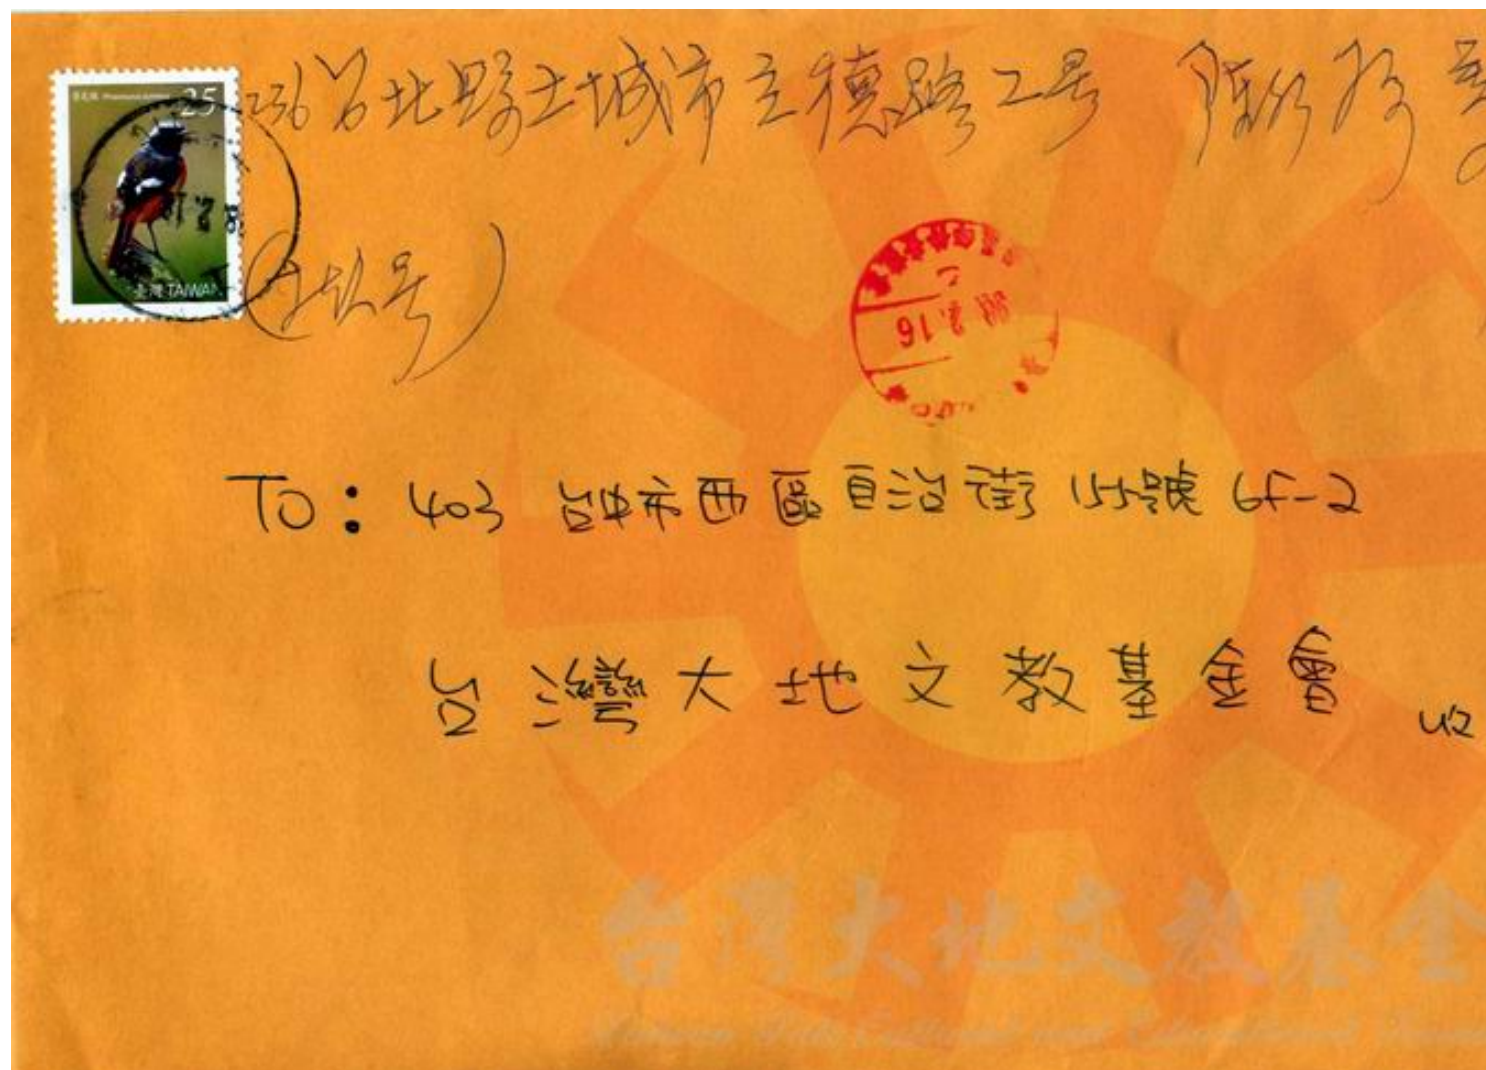 25
臺灣 TAIWAN
236台北縣土城市立德路2号 陳
号)
99.2.16
To: 403 台中市西區自治街155號6F-2
台灣大地文教基金會 收
台灣大地文教基金